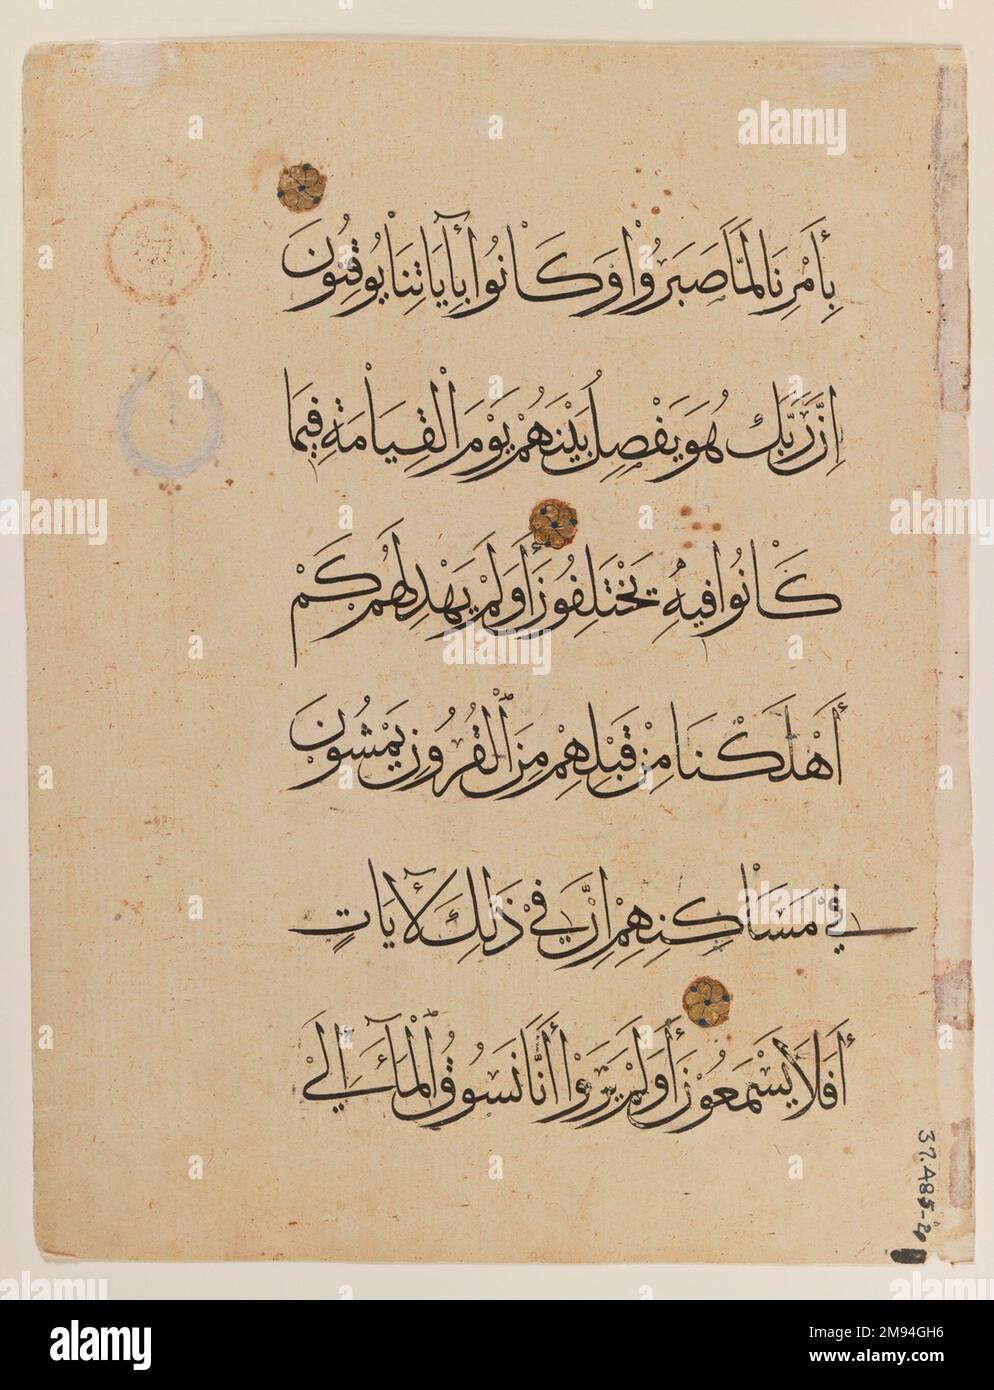 بِأَمْرِنَا لَمَّا صَبَرُوْا وَكَانُوْا بِآيَاتِنَا يُوقِنُونَ
اِنَّ رَبَّكَ هُوَ يَفْصِلُ بَيْنَهُمْ يَوْمَ الْقِيَامَةِ فِيمَا
كَانُوْا فِيهِ يَخْتَلِفُونَ أَوَلَمْ يَهْدِ لَهُمْ كَمْ
أَهْلَكْنَا مِنْ قَبْلِهِمْ مِنَ الْقُرُونِ يَمْشُونَ
فِيْ مَسَاكِنِهِمْ اِنَّ فِيْ ذَلِكَ لَآيَاتٍ
أَفَلَا يَسْمَعُوْنَ أَوَلَمْ يَرَوْا أَنَّا نَسُوْقُ الْمَآءَ اِلَيْ
37.485-2
a
alamy
alamy
Image ID: 2M94GH6
www.alamy.com